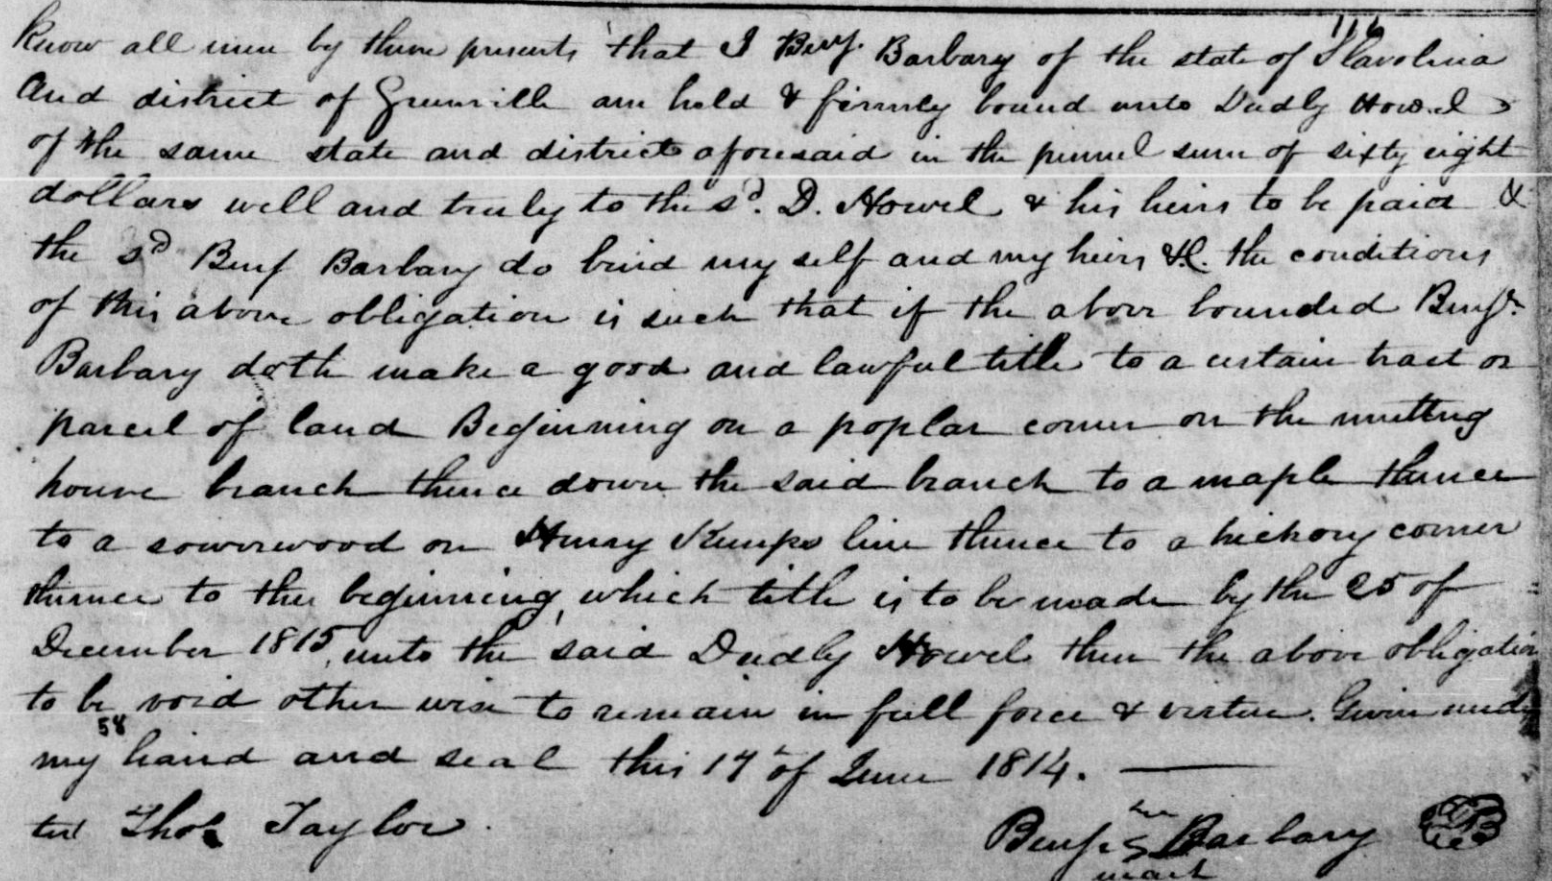 116
Know all men by these presents that I Benj. Barbary of the state of S Carolina
And district of Greenville am held & firmly bound unto Dudly Howel
of the same state and district aforesaid in the pennel sum of sixty eight
dollars well and truly to the sd. D. Howel & his heirs to be paid &
the sd Benj Barbary do bind my self and my heirs &c. the conditions
of this above obligation is such that if the above bounded Benjn.
Barbary doth make a good and lawful title to a certain tract or
parcel of land Beginning on a poplar corner on the meeting
house branch thence down the said branch to a maple thence
to a sowerwood on Henry Kemps line thence to a hickory corner
thence to the beginning, which title is to be made by the 25 of
December 1815, unto the said Dudly Howel then the above obligation
to be void other wise to remain in full force & virtue. Given under
58
my hand and seal this 17 of June 1814.
test Thos Taylor
Benj his Barbary
mark